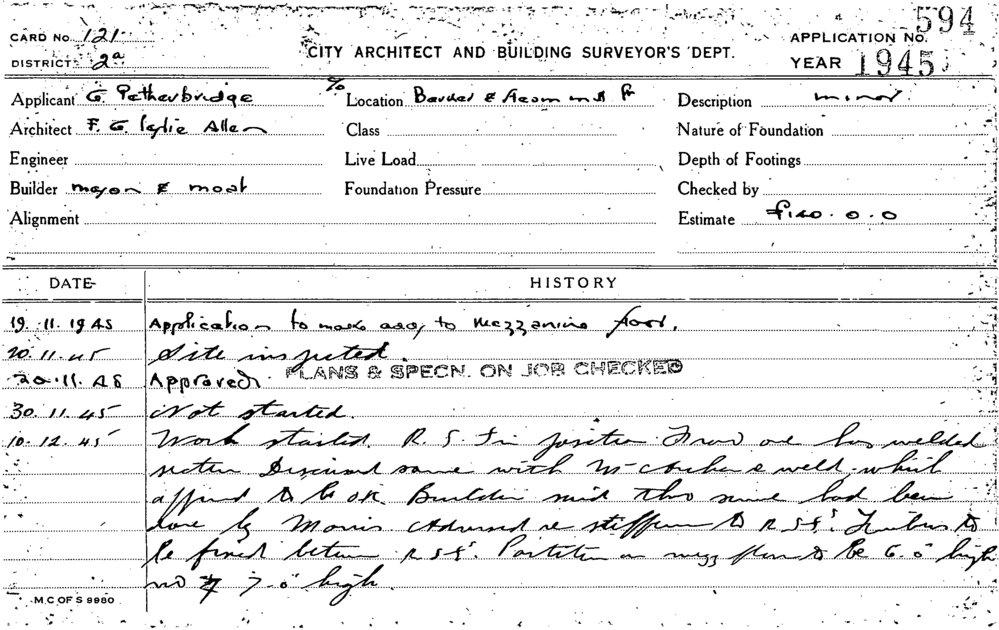 CARD No. 121
DISTRICT 2a
CITY ARCHITECT AND BUILDING SURVEYOR'S DEPT.
APPLICATION No. 594
YEAR 1945
Applicant G. Petherbridge
% Location Barker &
Description minor.
Architect F. G. Leslie Allen
Class
Nature of Foundation
Engineer
Live Load
Depth of Footings
Builder mayor & moat
Foundation Pressure
Checked by
Alignment
Estimate £140.0.0
DATE
HISTORY
19.11.1945 Application to make to mezzanine floor.
20.11.45 Site inspected.
20.11.45 Approved. PLANS & SPECN. ON JOB CHECKED
30.11.45 Not started.
10.12.45 Work started. R.S. in position. one has welded
section Discussed same with weld which
appeared to be OK Builder said this same had been
done by Morris Advised re to R.S.J's. to
be fixed between R.S.J's. Partition on mezz floor to be 6.0" high
no 7.0" high.
M.C OF S 9980